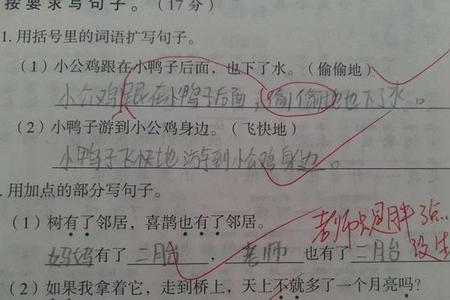 按要求写句子。（17分）
1. 用括号里的词语扩写句子。
（1）小公鸡跟在小鸭子后面，也下了水。（偷偷地）
小公鸡跟在小鸭子后面，偷偷地也下了水。
（2）小鸭子游到小公鸡身边。（飞快地）
小鸭子飞快地游到小公鸡身边。
用加点的部分写句子。
（1）树有了邻居，喜鹊也有了邻居。
老师只是胖了点
妈妈有了二胎，老师也有了二胎
没生
（2）如果我拿着它，走到桥上，天上不就多了一个月亮吗？